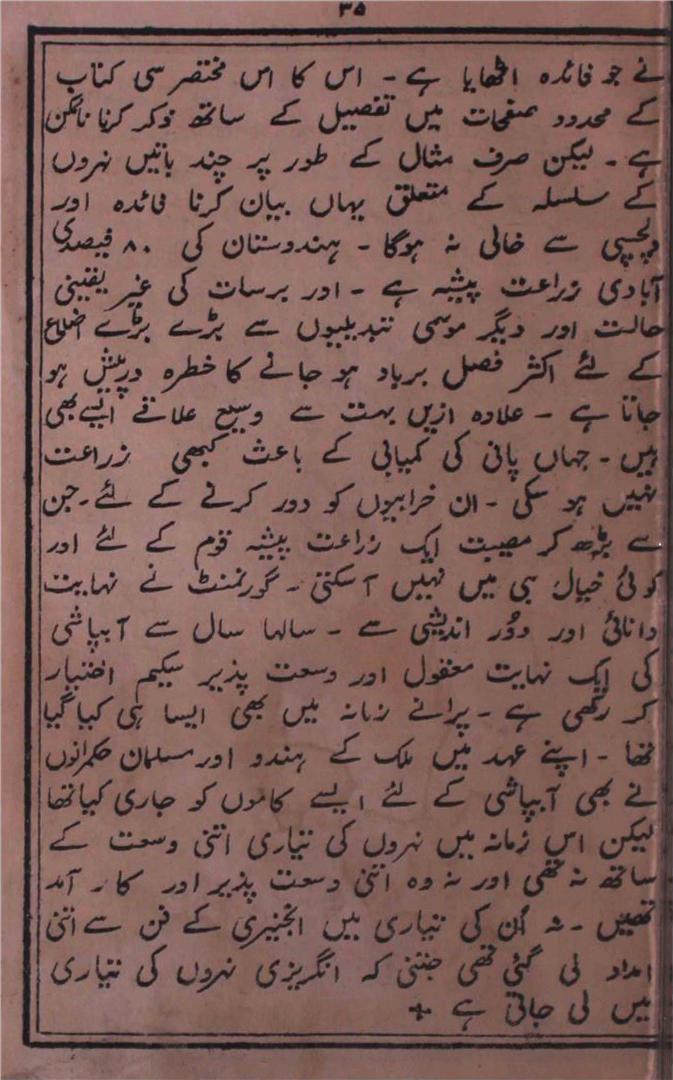 ۳۵
نے جو فائدہ اٹھایا ہے - اس کا اس مختصر سی کتاب
کے محدود صفحات میں تفصیل کے ساتھ ذکر کرنا ناممکن
ہے - لیکن صرف مثال کے طور پر چند باتیں نہروں
کے سلسلہ کے متعلق یہاں بیان کرنا فائدہ اور
دلچسپی سے خالی نہ ہوگا - ہندوستان کی ۸۰ فیصدی
آبادی زراعت پیشہ ہے - اور برسات کی غیر یقینی
حالت اور دیگر موسمی تبدیلیوں سے بڑے بڑے اضلاع
کے لئے اکثر فصل برباد ہو جانے کا خطرہ درپیش ہو
جاتا ہے - علاوہ ازیں بہت سے وسیع علاقے ایسے بھی
ہیں - جہاں پانی کی کمیابی کے باعث کبھی زراعت
نہیں ہو سکی - ان خرابیوں کو دور کرنے کے لئے - جن
سے بڑھ کر مصیبت ایک زراعت پیشہ قوم کے لئے اور
کوئی خیال ہی میں نہیں آسکتی - گورنمنٹ نے نہایت
دانائی اور دُور اندیشی سے - سالہا سال سے آبپاشی
کی ایک نہایت معقول اور وسعت پذیر سکیم اختیار
کر رکھی ہے - پرانے زمانہ میں بھی ایسا ہی کیا گیا
تھا - اپنے عہد میں ملک کے ہندو اور مسلمان حکمرانوں
نے بھی آبپاشی کے لئے ایسے کاموں کو جاری کیا تھا
لیکن اس زمانہ میں نہروں کی تیاری اتنی وسعت کے
ساتھ نہ تھی اور نہ وہ اتنی وسعت پذیر اور کار آمد
تھیں - نہ اُن کی تیاری میں انجنیری کے فن سے اتنی
امداد لی گئی تھی جتنی کہ انگریزی نہروں کی تیاری
میں لی جاتی ہے +